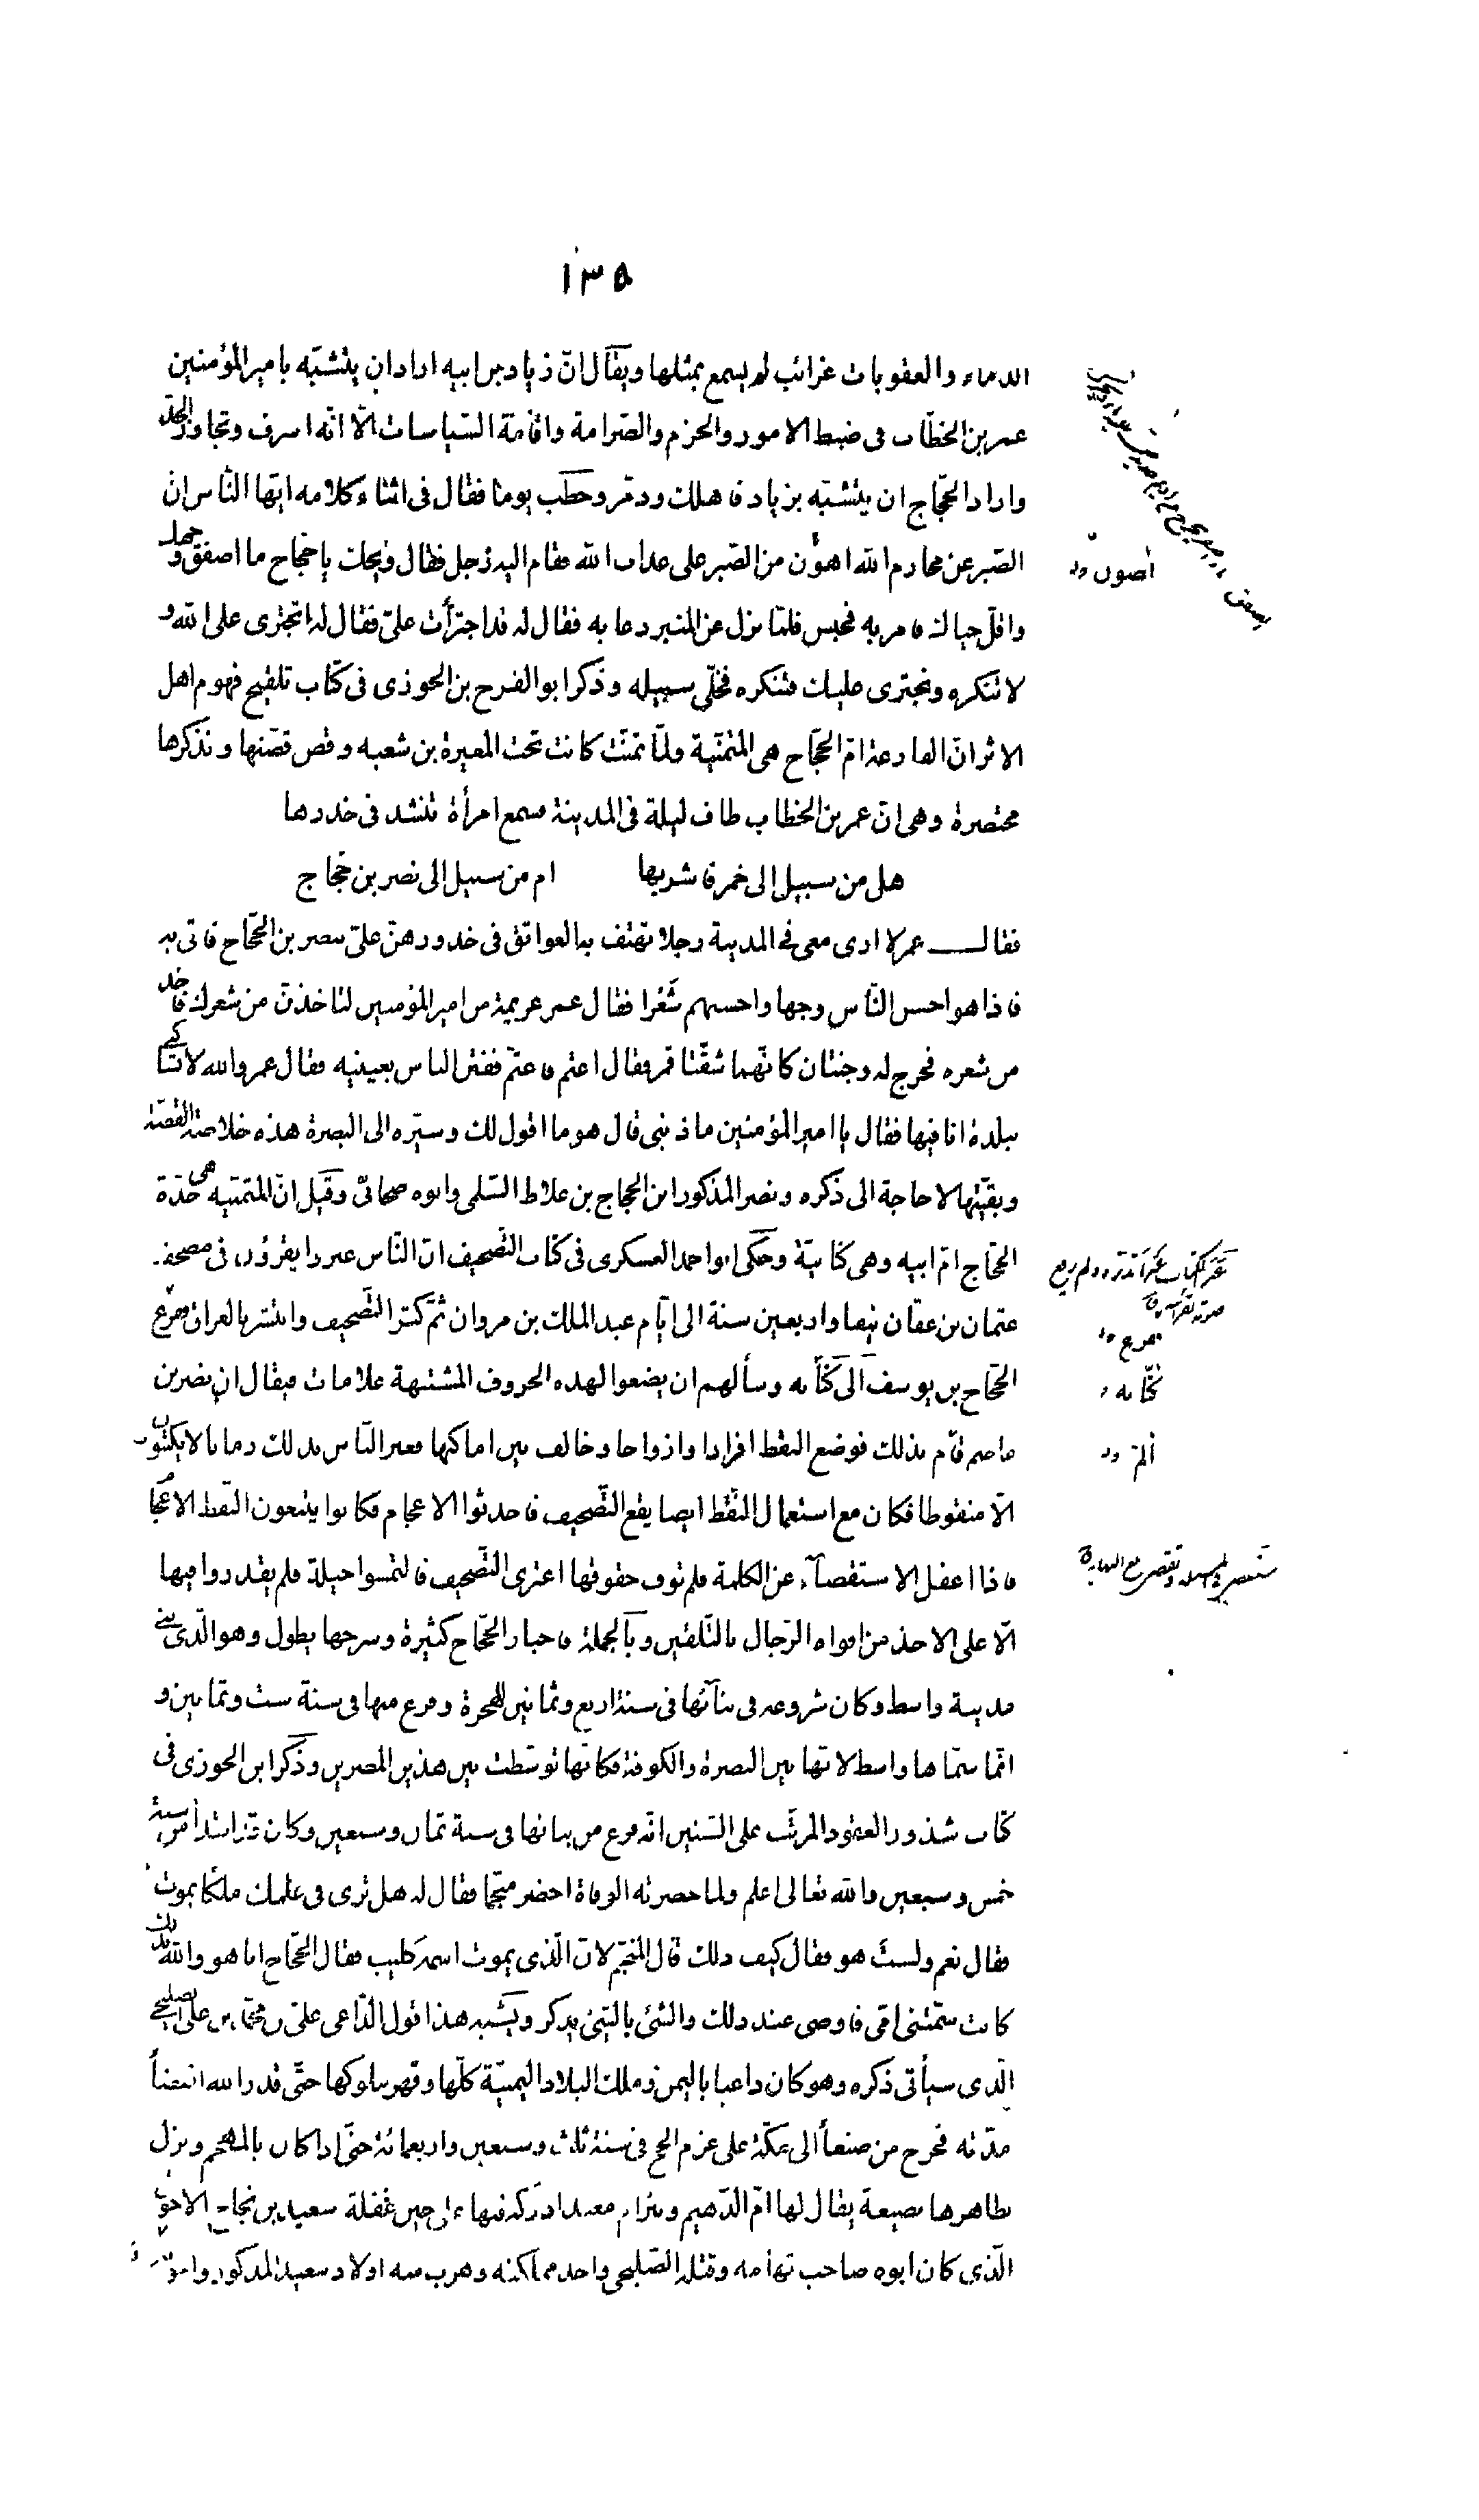 ١٣٥
الدماء والعقوبات غرائب لم يسمع بمثلها ويقال انّ زياد بن ابيه اراد ان يتشبّه بامير المؤمنين
عمر بن الخطّاب فى ضبط الامور والحزم والصّرامة واقامة السّياسات الّا انّه اسرف وتجاوز الحدّ
واراد الحجّاج ان يتشبّه بزياد فاهلك ودمّر وخطب يوما فقال فى اثناء كلامه ايّها النّاس انّ
الصّبر عن محارم الله اهون من الصّبر على عذاب الله فقام اليه رجل فقال ويحك يا حجّاج ما اصفق وجهك
واقلّ حياءك فامر به فحبس فلمّا نزل عن المنبر دعا به فقال له قد اجترأت علىّ فقال له اتجترى على الله و
لا تنكره ونجترى عليك فتنكره فخلّى سبيله وذكر ابو الفرج بن الجوزى فى كتاب تلقيح فهوم اهل
الاثر انّ الفارعة امّ الحجّاج هى المتمنّية ولمّا تمنّت كانت تحت المغيرة بن شعبه وقص قصّتها ونذكرها
مختصرة وهى انّ عمر بن الخطاب طاف ليلة فى المدينة فسمع امرأة تنشد فى خدرها
هل من سبيل الى خمر فاشربها ام من سبيل الى نصر بن حجّاج
فقال عمر لا ارى معى فى المدينة رجلا تهتف به العواتق فى خدورهنّ علىّ بنصر بن الحجّاج فاتى به
فاذا هو احسن النّاس وجها واحسنهم شَعْرا فقال عمر عزيمة من امير المؤمنين لتاخذنّ من شعرك فاخذ
من شعره فخرج له وجنتان كانّهما شقّتا قمر فقال اعتم فاعتمّ ففتن الناس بعينيه فقال عمر والله لا تساكنى
ببلدة انا فيها فقال يا امير المؤمنين ما ذنبى قال هو ما اقول لك وسيّره الى البصرة هذه خلاصة القصّة
وبقيّتها لا حاجة الى ذكره ونصر المذكور ابن الحجاج بن علاط السّلمى وابوه صحابىّ وقيل انّ المتمنّيه هى جدّة
الحجّاج امّ ابيه وهى كنانيّة وحكى ابو احمد العسكرى فى كتاب التصحيف انّ النّاس غبروا يقرؤن فى مصحف
عثمان بن عفّان نيفا واربعين سنة الى ايّام عبد الملك بن مروان ثمّ كثر التّصحيف وانتشر بالعراق ففزع
الحجّاج بن يوسف الى كتّابه وسألهم ان يضعوا لهذه الحروف المشتبهة علامات فيقال ان نصر بن
عاصم قام بذلك فوضع النقط افرادا وازواجا وخالف بين اماكنها فغبر النّاس بذلك زمانا لا يكتبون
الّا منقوطا فكان مع استعمال النّقط ايضا يقع التّصحيف فاحدثوا الاعجام فكانوا يتبعون النّقط الاعجام
فاذا اغفل الاستقصآء عن الكلمة فلم توف حقوقها اعترى التّصحيف فالتمسوا حيلة فلم يقدروا فيها
الّا على الاخذ من افواه الرّجال بالتّلقين وبالجملة فاخبار الحّجاج كثيرة وشرحها يطول وهو الّذى بنى
مدينة واسط وكان شروعه فى بنآئها فى سنة اربع وثمانين للهجرة وفرغ منها فى سنة ست وثمانين و
انّما سمّاها واسط لانّها بين البصرة والكوفة فكانّها توسّطت بين هذين المصرين وذكر ابن الجوزى فى
كتاب شذور العقود المرتّب على السّنين انّه فرغ من بنائها فى سنة ثمان وسبعين وكان قد ابتدأ من سنة
خمس وسبعين والله تعالى اعلم ولما حضرته الوفاة احضر منجّما فقال له هل ترى فى علمك ملكا يموت
فقال نعم ولست هو فقال كيف ذلك قال المنجّم لانّ الّذى يموت اسمه كليب فقال الحجّاج انا هو والله بذلك
كانت سمّتنى امّى فاوصى عند ذلك والشئ بالشئ يذكر ويشبه هذا قول الدّاعى علىّ بن محمّد بن على الصليحى
الّذى سيأتى ذكره وهو كان داعيا باليمن وملك البلاد اليمنيّة كلّها وقهر ملوكها حتّى قدر الله انقضاء
مدّته فخرج من صنعأ الى مكّة على عزم الحج فى سنة ثلث وسبعين واربعمائة حتّى اذا كان بالمهجم ونزل
بظاهرها بضيعة يقال لها امّ الدّهيم وبئر ام معبد ادركه فيها على حين غفلة سعيد بن نجاح الاحول
الّذى كان ابوه صاحب تهامه وقتله الصّليحى واخذ مملكته وهرب منه اولاد سعيد المذكور واخوته
اصون
ففزع
كتّابه